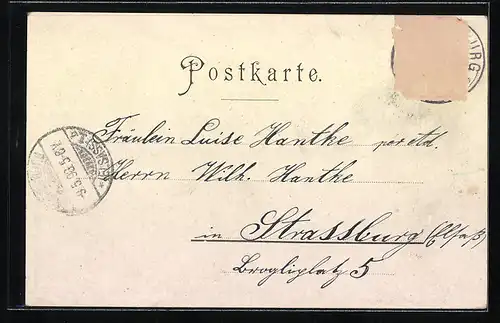 Postkarte.
Fräulein Luise Hanthe
Herrn Wilh. Hanthe
in Strassburg (Elsaß)
Brogliplatz 5
BURG